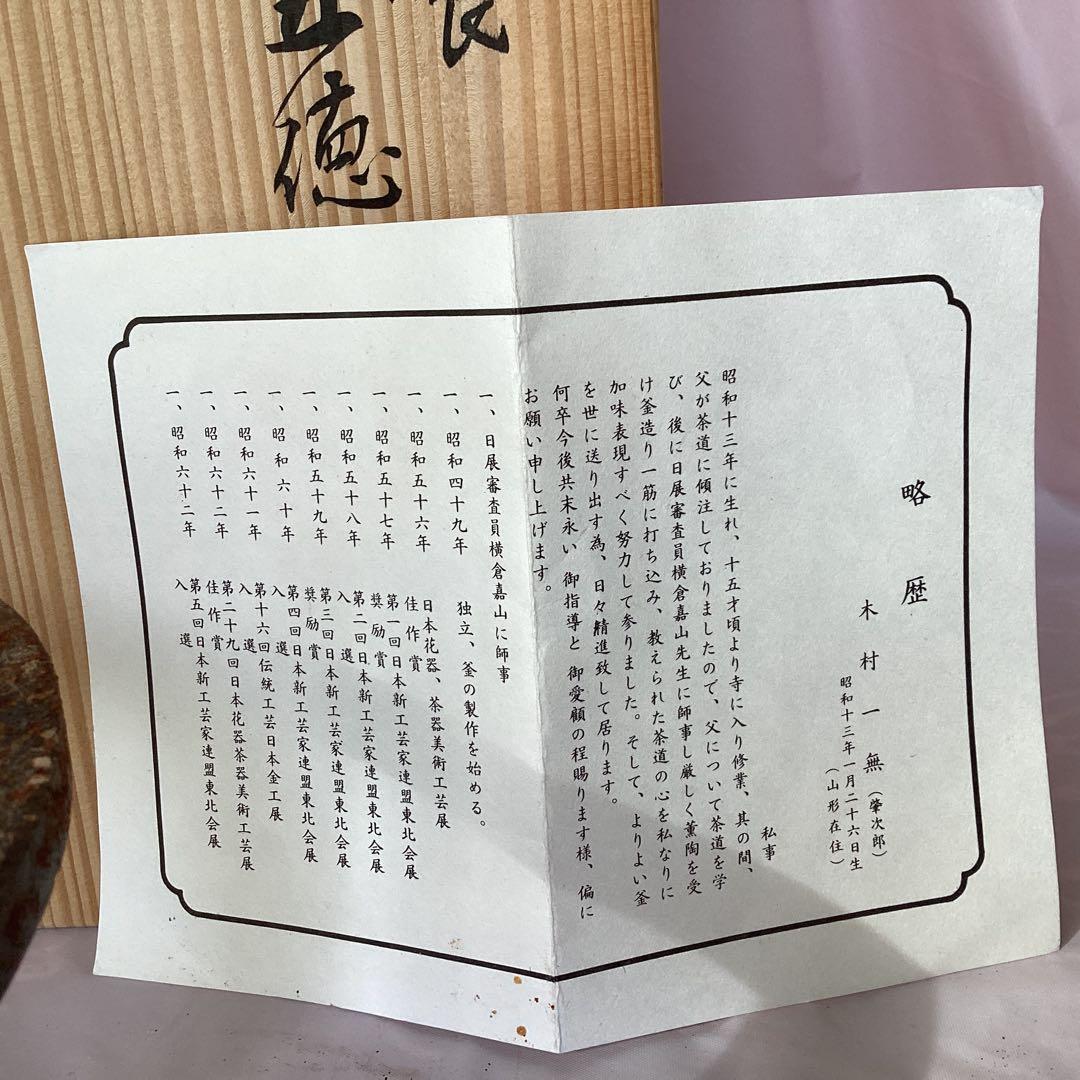 徳
略歴
木村一無(肇次郎)
昭和十三年一月二十六日生
(山形在住)
私事
昭和十三年に生れ、十五才頃より寺に入り修業、其の間、
父が茶道に傾注しておりましたので、父について茶道を学
び、後に日展審査員横倉嘉山先生に師事し厳しく薫陶を受
け釜造り一筋に打ち込み、教えられた茶道の心を私なりに
加味表現すべく努力して参りました。そして、よりよい釜
を世に送り出す為、日々精進致して居ります。
何卒今後共末永い御指導と御愛顧の程賜ります様、偏に
お願い申し上げます。
一、日展審査員横倉嘉山に師事
一、昭和四十九年 独立、釜の製作を始める。
一、昭和五十六年 日本花器、茶器美術工芸展
佳作賞
一、昭和五十七年 第一回日本新工芸家連盟東北会展
奨励賞
一、昭和五十八年 第二回日本新工芸家連盟東北会展
入選
一、昭和五十九年 第三回日本新工芸家連盟東北会展
奨励賞
一、昭和六十年 第四回日本新工芸家連盟東北会展
入選
一、昭和六十一年 第十六回伝統工芸日本金工展
入選
一、昭和六十二年 第二十九回日本花器茶器美術工芸展
佳作賞
一、昭和六十二年 第五回日本新工芸家連盟東北会展
入選